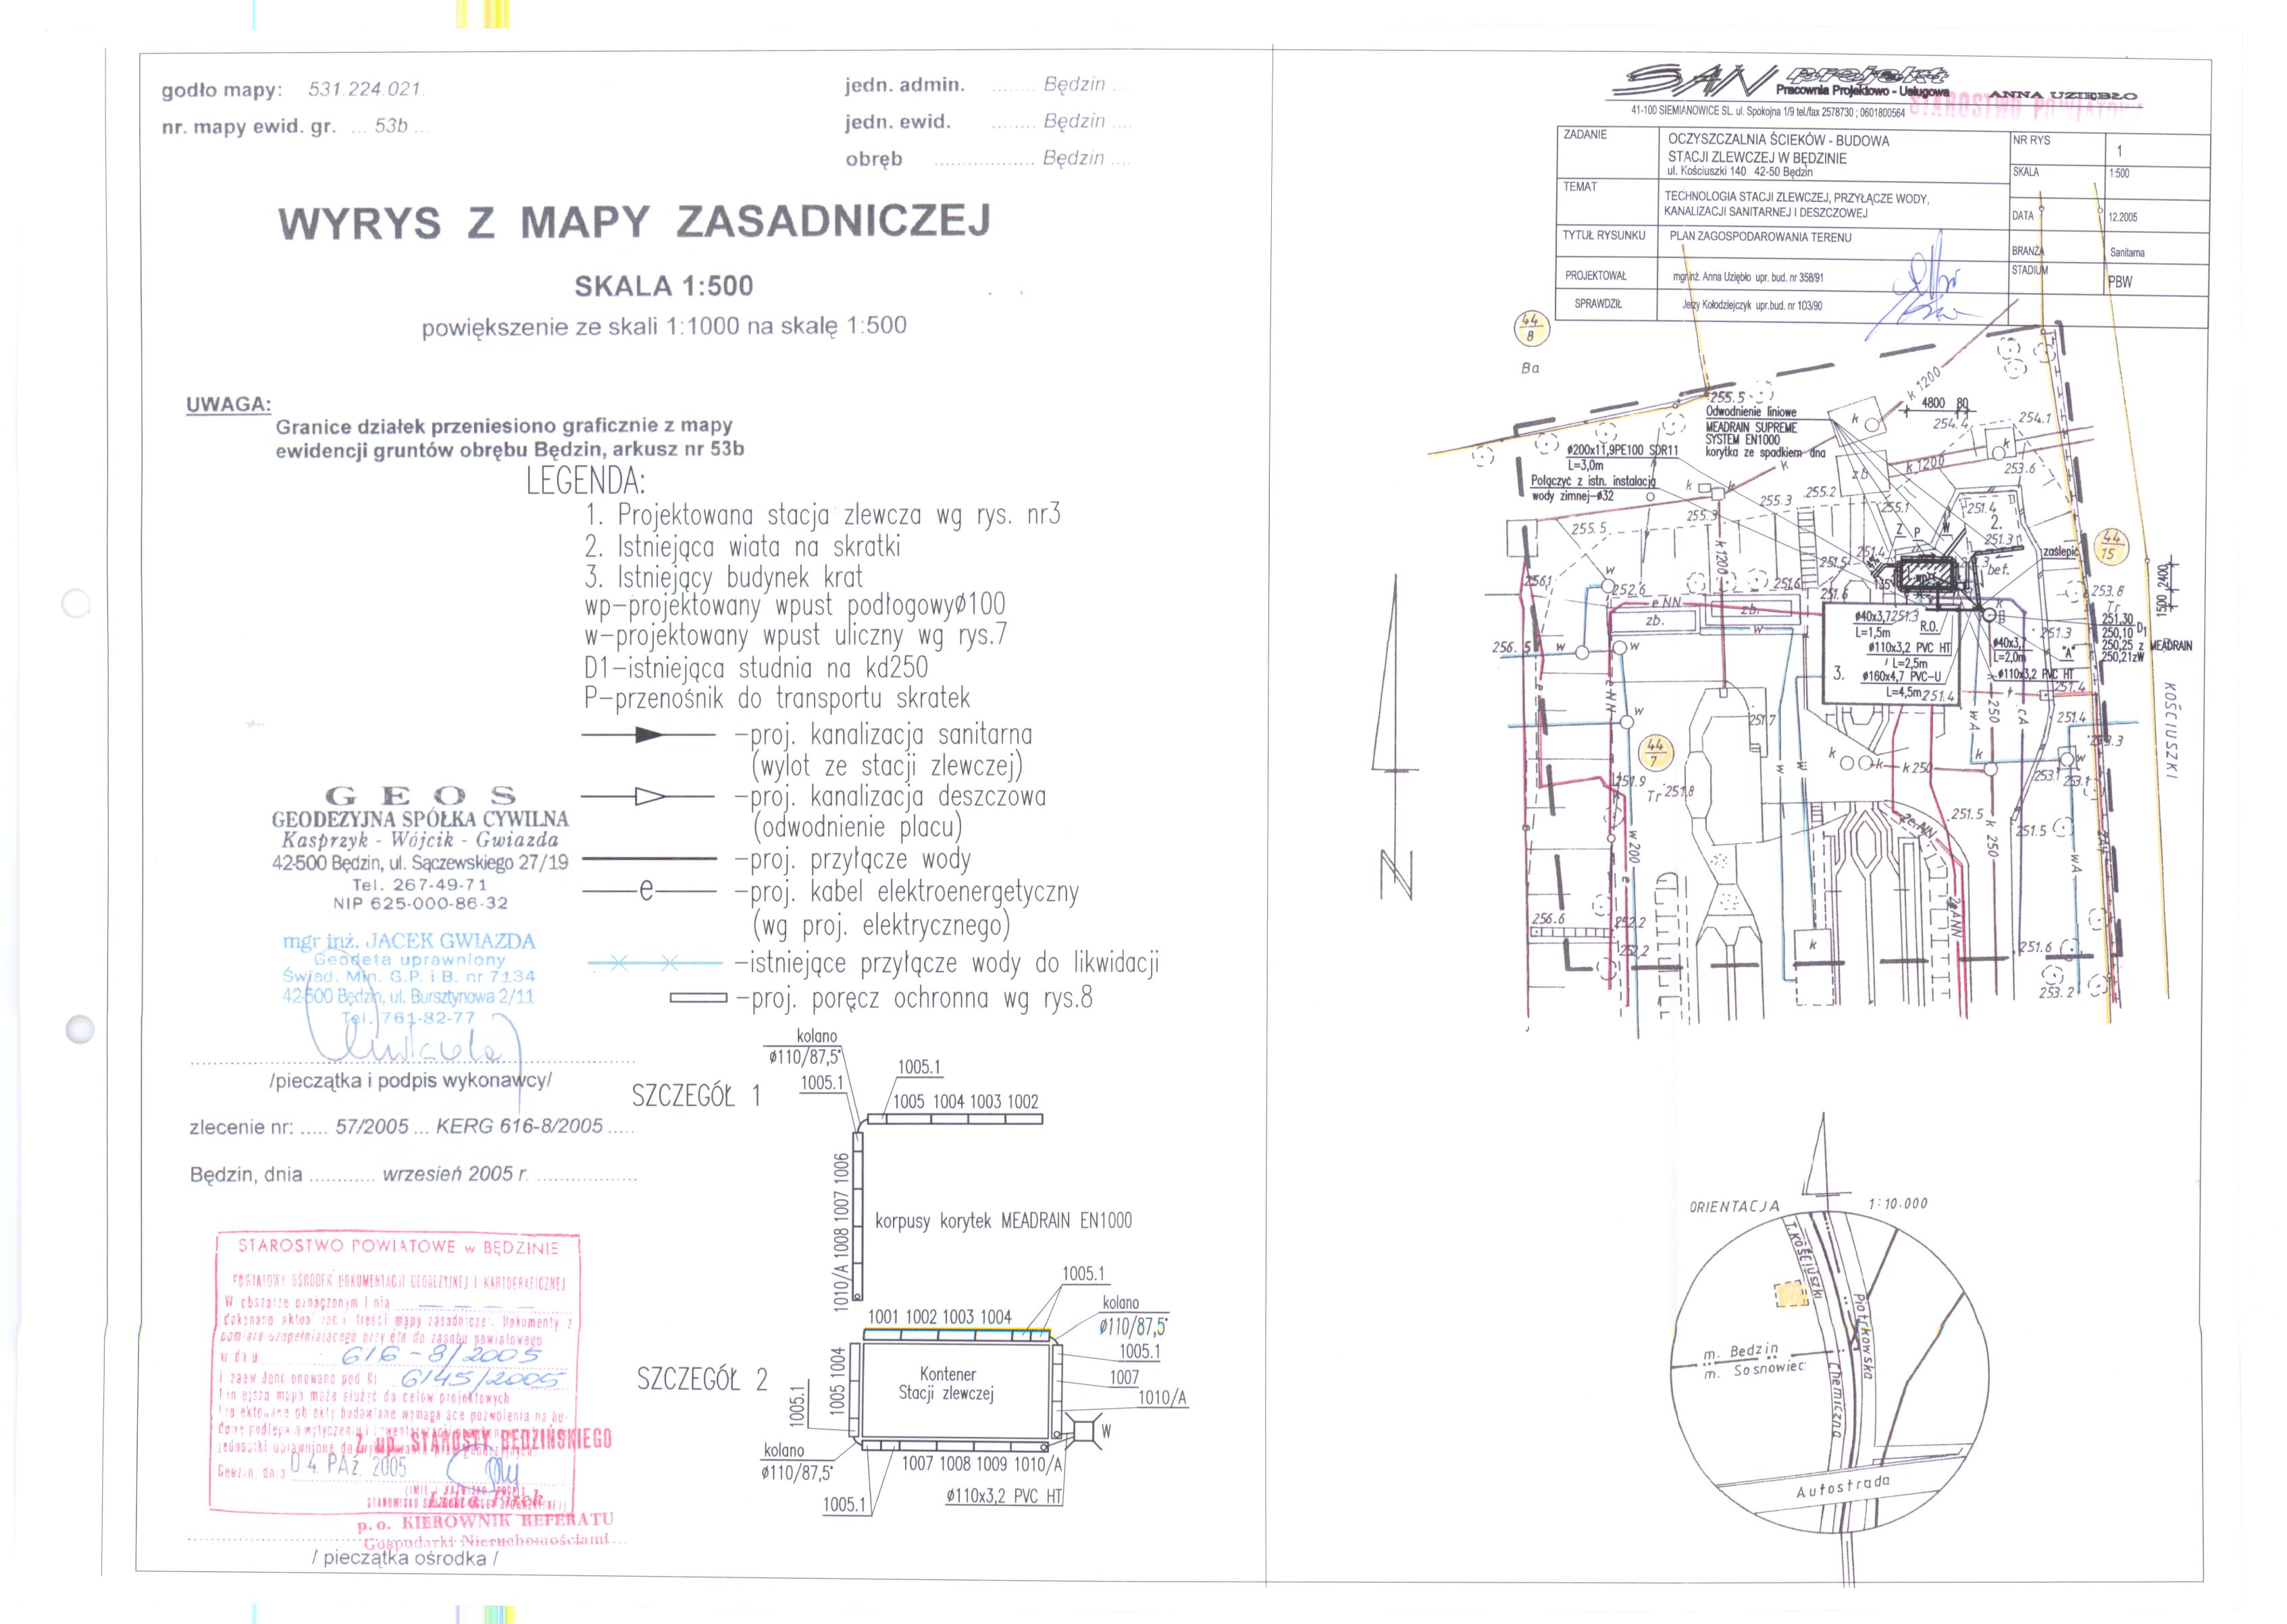 godło mapy: 531.224.021.
nr. mapy ewid. gr. ... 53b ...
jedn. admin. ........ Będzin ....
jedn. ewid. ........ Będzin ....
obręb .................. Będzin ....
WYRYS Z MAPY ZASADNICZEJ
SKALA 1:500
powiększenie ze skali 1:1000 na skalę 1:500
UWAGA:
Granice działek przeniesiono graficznie z mapy
ewidencji gruntów obrębu Będzin, arkusz nr 53b
LEGENDA:
1. Projektowana stacja zlewcza wg rys. nr3
2. Istniejąca wiata na skratki
3. Istniejący budynek krat
wp-projektowany wpust podłogowyø100
w-projektowany wpust uliczny wg rys.7
D1-istniejąca studnia na kd250
P-przenośnik do transportu skratek
-proj. kanalizacja sanitarna
(wylot ze stacji zlewczej)
-proj. kanalizacja deszczowa
(odwodnienie placu)
-proj. przyłącze wody
e -proj. kabel elektroenergetyczny
(wg proj. elektrycznego)
-istniejące przyłącze wody do likwidacji
-proj. poręcz ochronna wg rys.8
GEOS
GEODEZYJNA SPÓŁKA CYWILNA
Kasprzyk - Wójcik - Gwiazda
42-500 Będzin, ul. Sączewskiego 27/19
Tel. 267-49-71
NIP 625-000-86-32
mgr inż. JACEK GWIAZDA
Geodeta uprawniony
Świad. Min. G.P. i B. nr 7134
42-500 Będzin, ul. Bursztynowa 2/11
Tel. 761-82-77
/pieczątka i podpis wykonawcy/
zlecenie nr: ..... 57/2005 ... KERG 616-8/2005 .....
Będzin, dnia ............ wrzesień 2005 r. ..................
STAROSTWO POWIATOWE w BĘDZINIE
POWIATOWY OŚRODEK DOKUMENTACJI GEODEZYJNEJ I KARTOGRAFICZNEJ
W obszarze oznaczonym linią
616-8/2005
6145/2005
z up. STAROSTY BĘDZIŃSKIEGO
04. PAŹ. 2005
p.o. KIEROWNIK REFERATU
Gospodarki Nieruchomościami
/ pieczątka ośrodka /
SZCZEGÓŁ 1
kolano
ø110/87,5°
1005.1
1005.1
1005 1004 1003 1002
1010/A 1008 1007 1006
korpusy korytek MEADRAIN EN1000
SZCZEGÓŁ 2
1005.1
1001 1002 1003 1004
kolano
ø110/87,5°
1005.1
1007
1010/A
W
Kontener
Stacji zlewczej
1005 1004
1005.1
kolano
ø110/87,5°
1007 1008 1009 1010/A
1005.1
ø110x3,2 PVC HT
SAN projekt
Pracownia Projektowo - Usługowa
ANNA UZIĘBŁO
41-100 SIEMIANOWICE SL. ul. Spokojna 1/9 tel./fax 2578730 ; 0601800564
STAROSTWO POWIATOWE
ZADANIE
OCZYSZCZALNIA ŚCIEKÓW - BUDOWA
STACJI ZLEWCZEJ W BĘDZINIE
ul. Kościuszki 140 42-50 Będzin
NR RYS 1
SKALA 1:500
TEMAT
TECHNOLOGIA STACJI ZLEWCZEJ, PRZYŁĄCZE WODY,
KANALIZACJI SANITARNEJ I DESZCZOWEJ
DATA 12.2005
TYTUŁ RYSUNKU PLAN ZAGOSPODAROWANIA TERENU
BRANŻA Sanitarna
PROJEKTOWAŁ mgr inż. Anna Uziębło upr. bud. nr 358/91
STADIUM PBW
SPRAWDZIŁ Jerzy Kołodziejczyk upr.bud. nr 103/90
44
8
Ba
255.5
Odwodnienie liniowe
MEADRAIN SUPREME
SYSTEM EN1000
korytka ze spadkiem dna
k 1200
4800 80
254.4
254.1
253.6
ø200x11,9PE100 SDR11
L=3,0m
Połączyć z istn. instalacją
wody zimnej-ø32
255.5
255.3
255.3
255.2
255.1
zb
k 1200
k1200
251.4
2.
251.3
zaślepić
44
15
Z P W
251.4
251.5
251.6
251.6
bet.
256.1
252.6
e NN
zb.
zb.
253.8
Tr
2400
1500
251,30 D1
250,10
250,25 z MEADRAIN
250,21zW
ø40x3,7
251.3
L=1,5m
R.O.
ø110x3,2 PVC HT
L=2,5m
ø160x4,7 PVC-U
L=4,5m
251.4
3.
ø40x3,7
L=2,0m
"A"
ø110x3,2 PVC HT
251.3
251.4
256.5
251.7
44
7
251.9
Tr 251.8
k 250
k 250
wA
cA
251.4
253.3
253.1
253.1
251.5
251.5
w200
256.6
252.2
252.2
251.6
253.2
KOŚCIUSZKI
N
ORIENTACJA 1:10.000
T.KOŚCIUSZKI
Piotrkowska
m. Będzin
m. Sosnowiec
Chemiczna
Autostrada